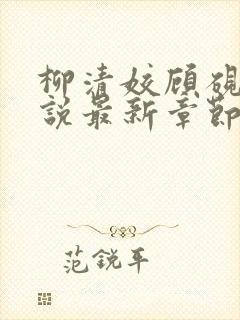 柳清姣顾砚
說最新章節
范銳平